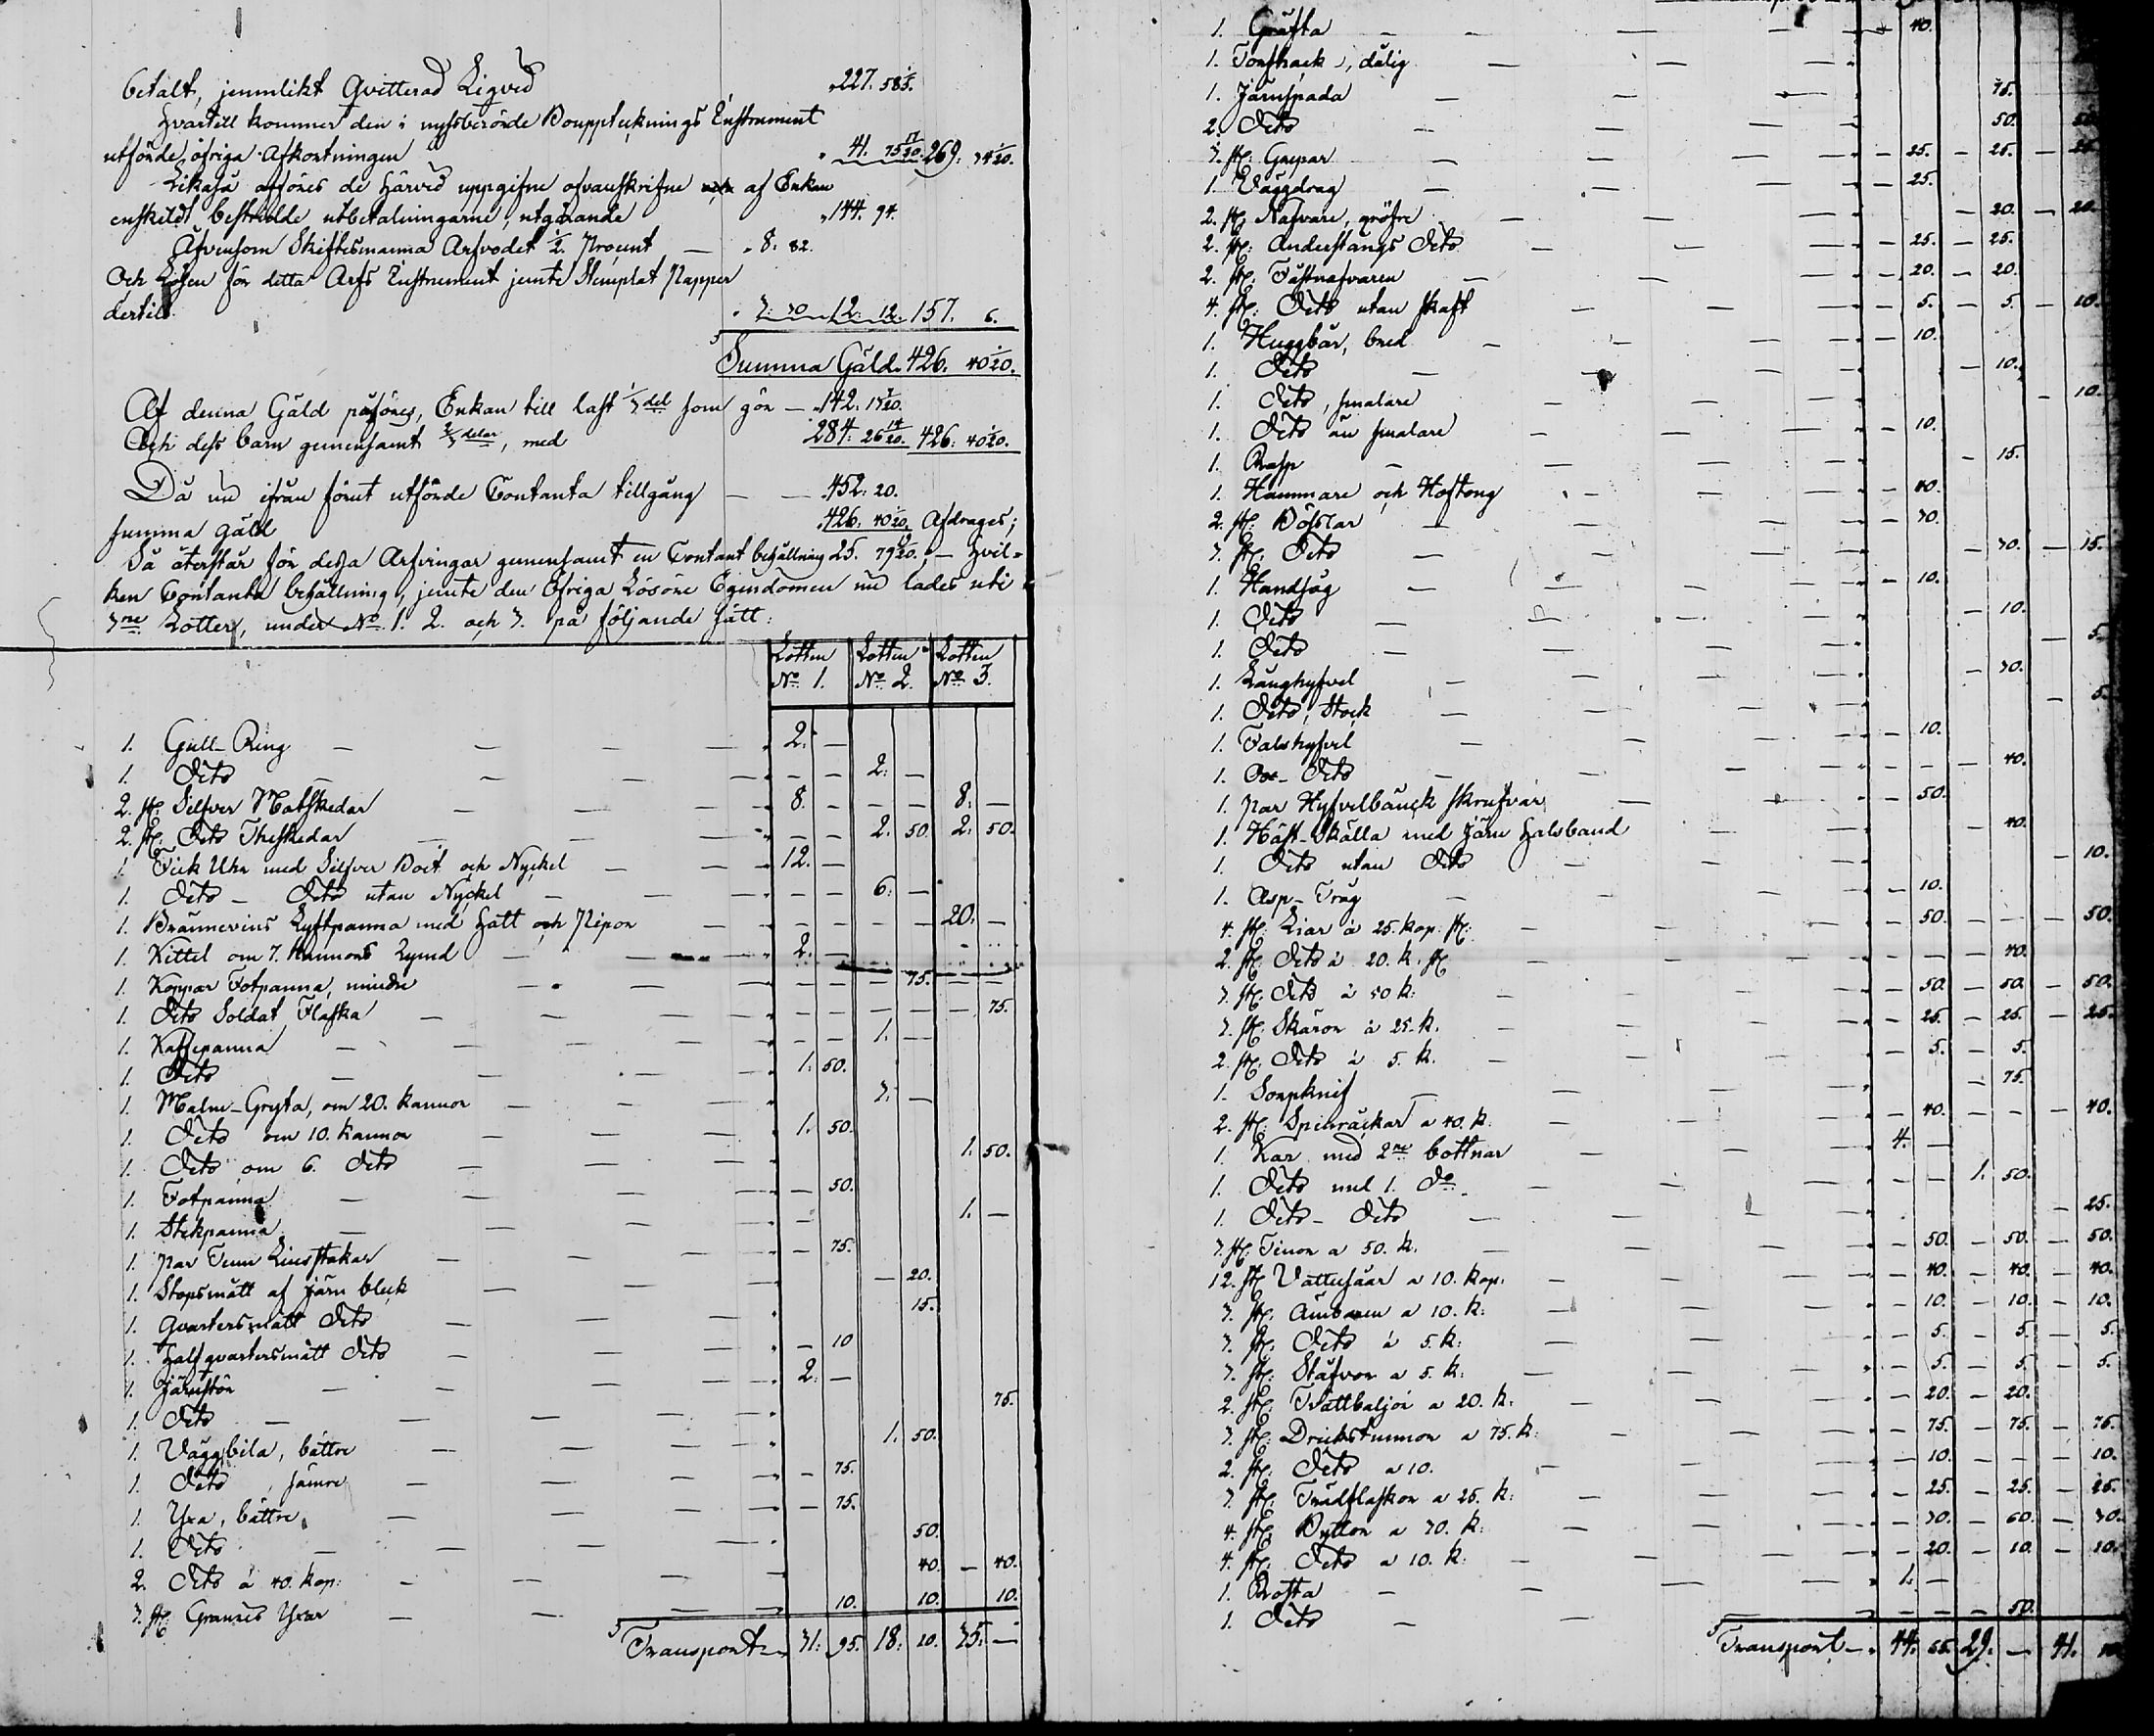 betalt, jemnlikt Qvitterad Liqvid 227. 58 1/5.
Hvartill kommer den i nyssberörde Bouppteknings Instrument
utförde öfriga Afkortningen 41. 75 17/20. 269. 34 1/20.
Likaså afföres de härvid uppgifne ofvanskrifne af Enkan
enskildt bestridde utbetalningarne, utgörande 144. 94.
Äfvensom Skiftesmanna Arfvodet 1/2 Procent — 8. 82.
Och Lösen för detta Arfs Instrument jemte Stemplat Papper
dertill 3. 30. 12. 12. 157. 6.
Summa Gäld. 426. 40 1/20.
Af denna Gäld påföres, Enkan till last 1/3 del som gör — 142. 13 7/20.
Och dess barn gemensamt 2/3 delar, med 284. 26 14/20. 426. 40 1/20.
Då nu ifrån förut utförde Contanta tillgång — 452. 20.
summa gäld 426. 40 1/20. Afdrages;
Så återstår för dessa Arfvingar gemensamt en Contant behållning 25. 79 19/20. — hvil-
ken Contanta behållning, jemte den Öfriga Lösöre Egendomen nu lades uti
3ne Lotter, under No. 1. 2. och 3. på följande sätt:
Lotten No 1. Lotten No 2. Lotten No 3.
1. Gull-Ring — 2. —
1. Dito — 2. —
2. st. Silfver Matskedar — 8. — — — 8. —
2. st. Dito Theskedar — — — 2. 50. 2. 50.
1. Fick Uhr med Silfver Boet och Nyckel — 12. —
1. Dito — Dito utan Nyckel — — — 6. —
1. Brännevins Lyftpanna med hatt och Pipor — — — — — 20. —
1. Kittel om 7. Kannors Rymd — 2. —
1. Koppar Fotpanna, mindre — — — — 75. — —
1. Dito Soldat Flaska — — — — — — 75.
1. Kaffepanna — — — 1. —
1. Dito — 1. 50.
1. Malm-Gryta, om 20. kannor — 3. —
1. Dito om 10. kannor — 1. 50.
1. Dito om 6. Dito — 1. 50.
1. Fotpanna — — 50.
1. Stekpanna — — 1. —
1. Par Tenn Ljusstakar — — 75.
1. Stopsmått af Järn bleck — — 20.
1. Qvartersmått Dito — 15.
1. Half qvartersmått Dito — — 10
1. Järnstör — 2. —
1. Dito — 75.
1. Väggbila, bättre — 1. 50.
1. Dito, sämre — — 75.
1. Yxa, bättre — — 75.
1. Dito — 50.
2. Dito à 40. kop: — 40. — 40.
3. st. Yxar — 10. 10. 10.
Transport — 31. 95. 18. 20. 35. —
1. Gräfta — — 40.
1. Torfhack, dålig —
1. Järnspada — 75.
2. Dito — 50. 50.
3. st. — — 25. — 25. — 25.
1. Väggdrag — — 25.
2. st. Nafvare, gröfre — — 20. — 20.
2. st. Anderstångs Dito — — 25. — 25.
2. st. Fästnafvaren — — 20. — 20.
4. st. Dito utan skaft — — 5. — 5. — 10.
1. Huggbår, bred — — 10.
1. Dito — — 10.
1. Dito, smalare — — 10.
1. Dito än smalare — — 10.
1. Rasp — — 15.
1. Hammare och Hoftong — — 40.
2. st. Bössor — — 30.
3. st. Dito — — 30. — 15.
1. Handsåg — — 10.
1. Dito — — 10.
1. Dito — — 5.
1. Långhyfvel — — 30.
1. Dito, Stock — — 5.
1. Falshyfvel — — 10.
1. Ox-Dito — — — — 40.
1. par Hyfvelbänck skrufvar — — 50.
1. Häst-Skälla med järn halsband — — 40.
1. Dito utan Dito — — 10.
1. Asp-Tråg — — 10.
4. st. Liar à 25. kop. st. — — 50. — — — 50.
2. st. Dito à 20. k. st. — — — — 40.
3. st. Dito à 50 k: — — 50. — 50. — 50.
3. st. Skäror à 25. k. — — 25. — 25. — 25.
2. st. Dito à 5. k. — — 5. — 5.
1. Sorpknif — — 75.
2. st. Spinråckar a 40. k. — — 40. — — — 40.
1. Kar med 2ne bottnar — 4. —
1. Dito med 1. Do — — — 1. 50.
1. Dito — Dito — — 25.
3. st. Tinor a 50. k. — — 50. — 50. — 50.
12. st. Vattusåar a 10. kop. — — 40. — 40. — 40.
3. st. Ämbaren a 10. k: — — 10. — 10. — 10.
3. st. Dito à 5. k: — — 5. — 5. — 5.
3. st. Stäfvor a 5. k: — — 5. — 5. — 5.
2. st. Tvättbaljor a 20. k. — — 20. — 20.
3. st. Drickstunnor a 75. k. — — 75. — 75. — 75.
2. st. Dito a 10. — — 10. — — — 10.
3. st. Trädflaskor a 25. k: — — 25. — 25. — 25.
4. st. Byttor a 30. k: — — 30. — 60. — 30.
4. st. Dito a 10. k: — — 20. — 10. — 10.
1. Rosta — 1. —
1. Dito — — — — 50.
Transport — 44. 65. 29. — 41.